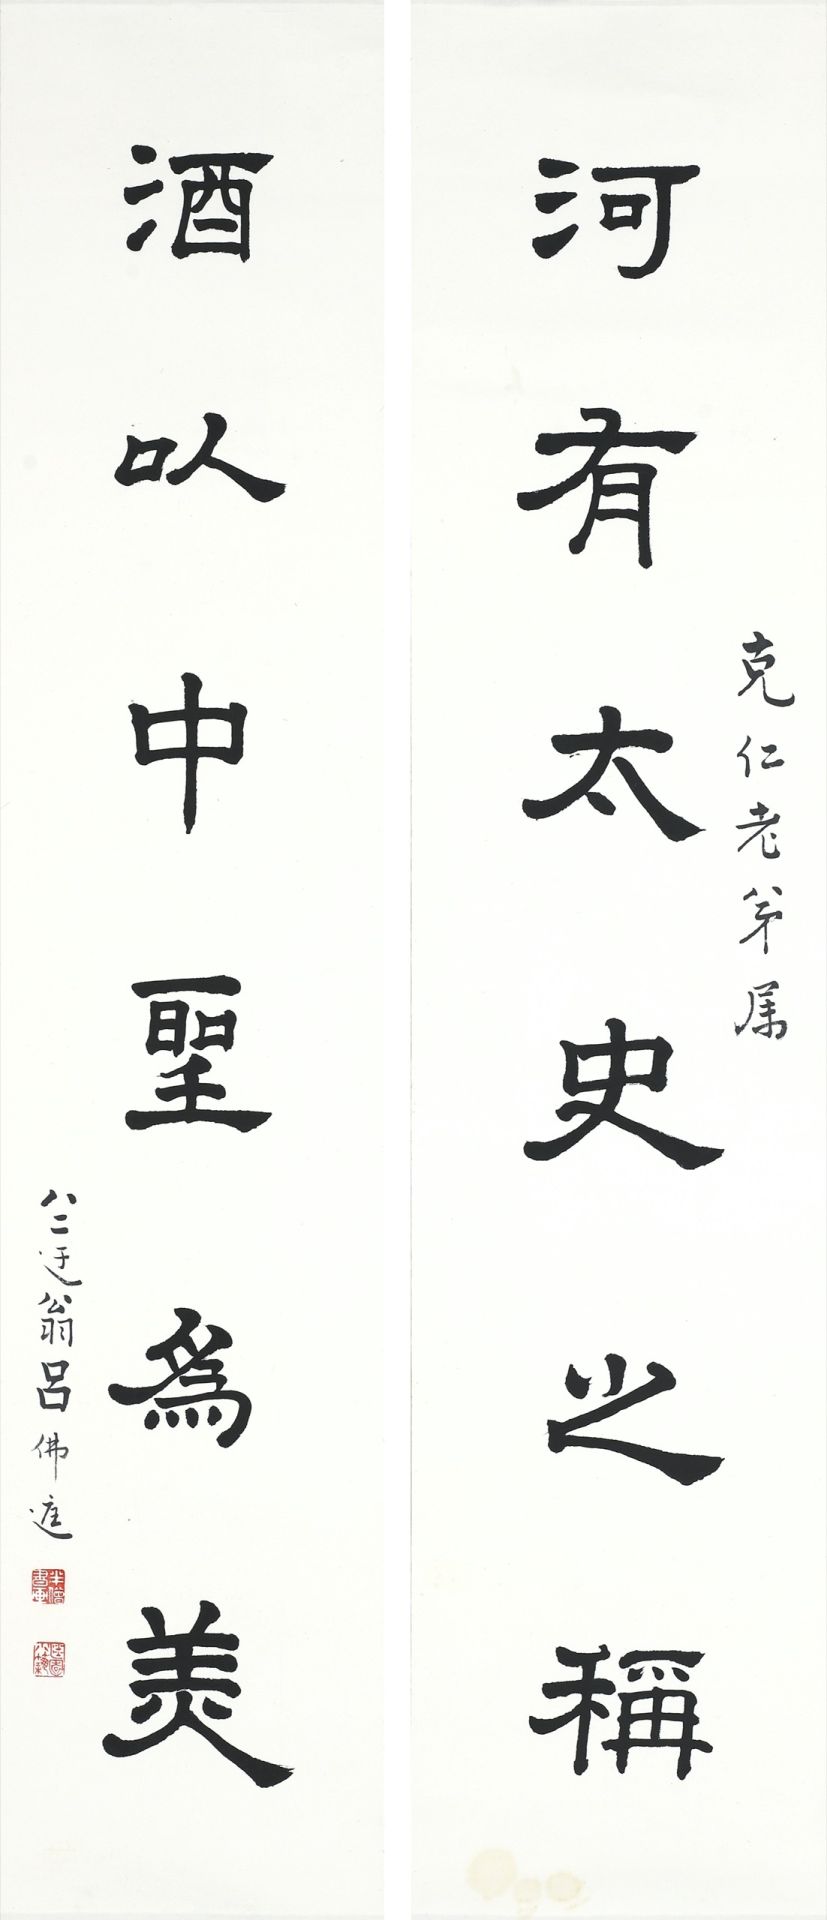 河有太史之稱
克仁老弟属
酒以中聖為美
八二迂翁呂佛庭